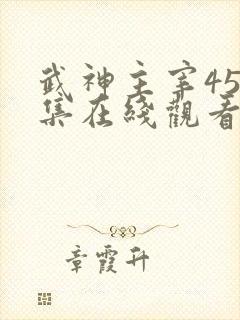 武神主宰45
集在綫觀看
章霞升